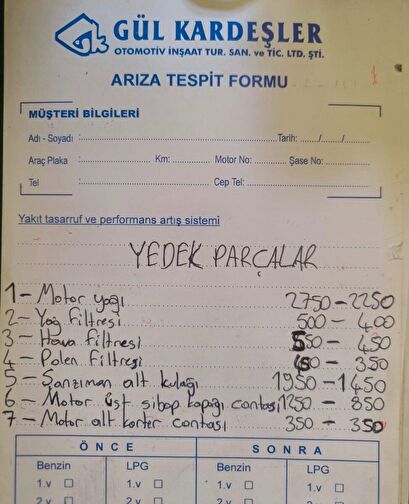 GÜL KARDEŞLER
OTOMOTİV İNŞAAT TUR. SAN. ve TİC. LTD. ŞTİ.
ARIZA TESPİT FORMU
MÜŞTERİ BİLGİLERİ
Adı - Soyadı : Tarih: / /
Araç Plaka : Km: Motor No: Şase No:
Tel : Cep Tel:
Yakıt tasarruf ve performans artış sistemi
YEDEK PARÇALAR
1- Motor yağı 2750-2250
2- Yağ filtresi 500-400
3- Hava filtresi 550-450
4- Polen filtresi 450-350
5- Şanzıman alt kulağı 1950-1450
6- Motor üst sibop kapağı contası 1250-850
7- Motor alt karter contası 350-350
ÖNCE SONRA
Benzin LPG Benzin LPG
1.v 1.v 1.v 1.v
2.v 2.v 2.v 2.v